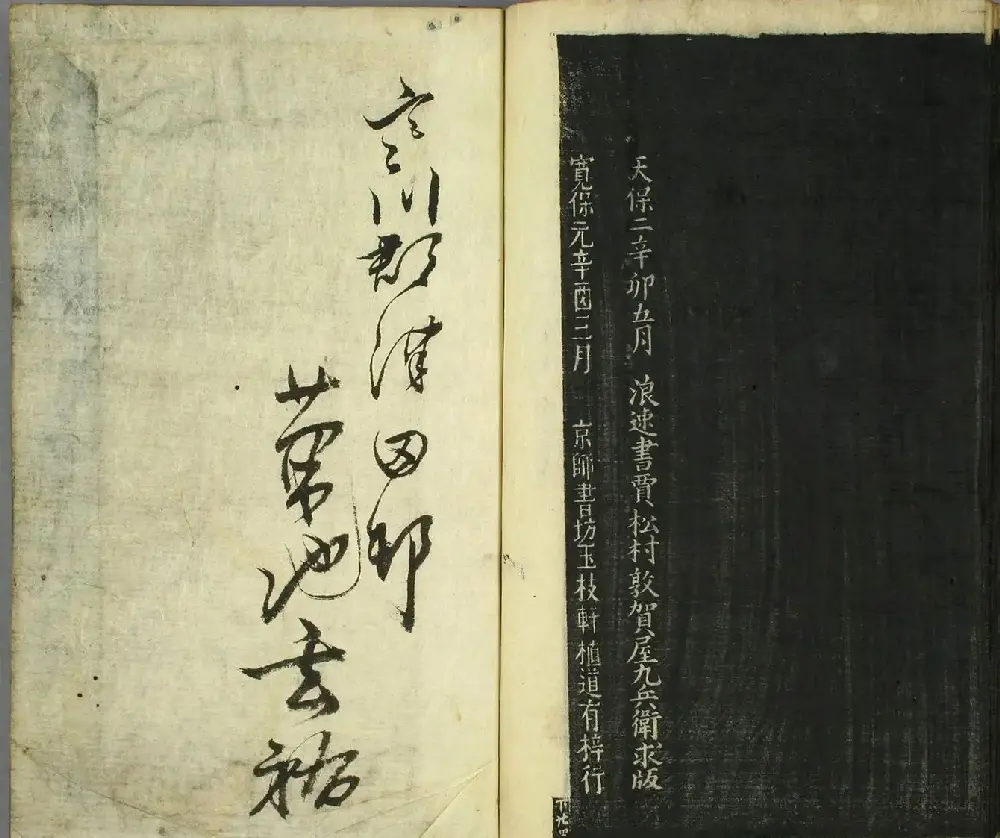 天保二辛卯五月 浪速書賈松村敦賀屋九兵衛求版
寛保元辛酉三月 京師書坊玉枝軒植道有梓行
寒川郡津田邨
菊池玄